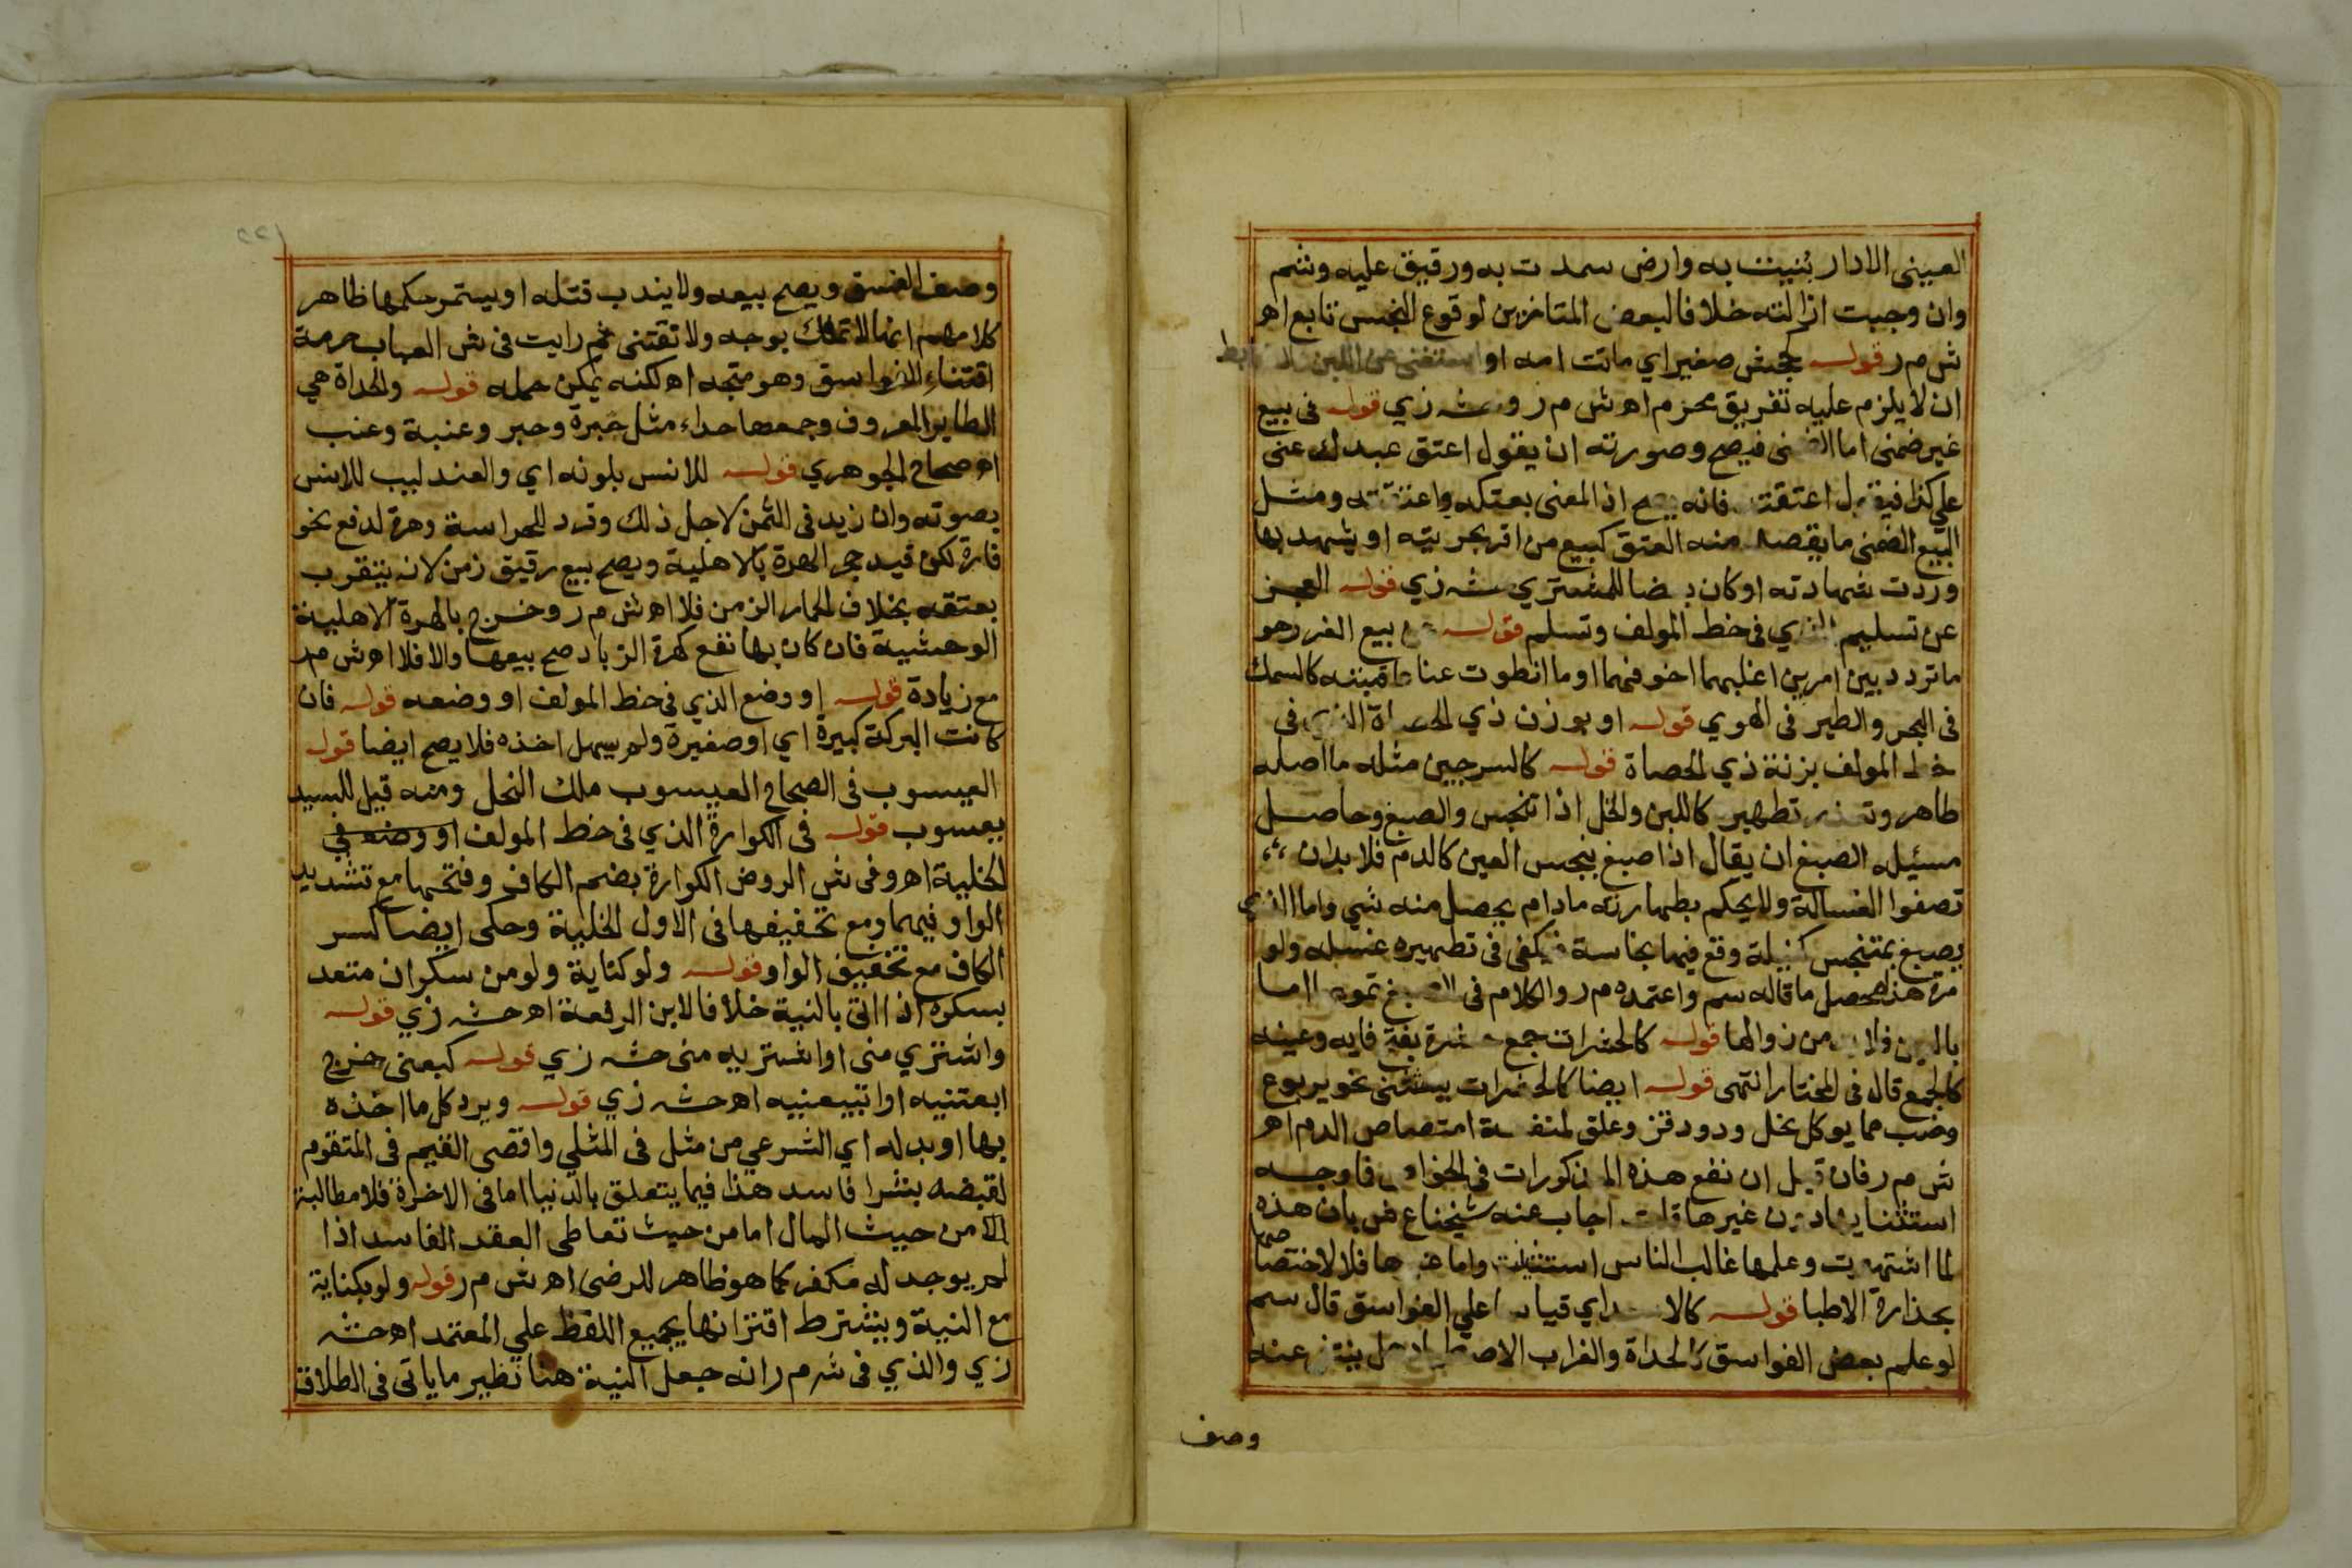 العيني الا دار بنيت به وارض سمدت به ورقيق عليه وشم
وان وجبت ازالته خلافا لبعض المتاخرين لوقوع النجس تابع اهر
ش م ر قوله كجحش صغير اي ماتت امه او استغنى عن اللبن
ان لا يلزم عليه تفريق محرم اهر ش م ر وحشه زي قوله في بيع
غير ضمني اما الضمني فيصح وصورته ان يقول اعتق عبدك عني
علي كذا فيقول اعتقته فانه يصح اذ المعنى بعتكه واعتقته ومثل
البيع الضمني ما يقصد منه العتق كبيع من اقر بحريته او يشهد بها
وردت شهادته او كان بعضا للمشتري حشه زي قوله العجز
عن تسليم الذي في خط المولف وتسلم قوله بيع الغرر هو
ما تردد بين امرين اغلبهما اخوفهما او ما انطوت عنا عاقبته كالسمك
في البحر والطير في الهوي قوله او بوزن ذي الحداة الذي في
خط المولف بزنة ذي الحصاة قوله كالسرجين مثله ما اصله
طاهر وتعذر تطهيره كاللبن والخل اذا تنجس والصبغ وحاصل
مسئيله الصبغ ان يقال اذا صبغ بنجس العين كالدم فلا بد ان
تصفوا الغسالة ولا يحكم بطهارته ما دام يحصل منه شي واما الذي
يصبغ بمتنجس كنيلة وقع فيها نجاسة فيكفي في تطهيره غسله ولو
مرة هذا محصل ما قاله سم واعتمده م ر والكلام في الصبغ تموه اما
بالعين فلا بد من زوالها قوله كالحشرات جمع حشرة بفتح فايه وعينه
كالجمع قال في المختار انتهى قوله ايضا كالحشرات يستثنى نحو يربوع
وضب مما يوكل نحل ودود قز وعلق لمنفعة امتصاص الدم اهر
ش م ر فان قيل ان نفع هذه المذكورات في الخواص فا وجه
استثنايها دون غيرها قلت اجاب عنه شيخنا ع ش بان هذه
لما اشتهرت وعلمها غالب الناس استثنيت واما غيرها فلا لاختصاصها
بحذارة الاطبا قوله كالاسد اي قياسا علي الفواسق قال سم
لو علم بعض الفواسق كالحداة والغراب الاصطياد هل ينتفي عنه
وصف
١٢٢
وصف الفسق ويصح بيعه ولا يندب قتله او يستمر حكمها ظاهر
كلامهم انها لا تملك بوجه ولا تقتنى ثم رايت في ش العباب حرمة
اقتناء الفواسق وهو متجه اهر لكنه يمكن حمله قوله والحداة هي
الطاير المعروف وجمعها حداء مثل حبرة وحبر وعنبة وعنب
اهر صحاح الجوهري قوله للانس بلونه اي والعندليب للانس
بصوته وان زيد في الثمن لاجل ذلك وقرد للحراسة وهرة لدفع نحو
فارة لكن قيد حجر الهرة بالاهلية ويصح بيع رقيق زمن لانه يتقرب
بعتقه بخلاف الحمار الزمن فلا اهر ش م ر وخرج بالهرة الاهلية
الوحشية فان كان بها نفع كهرة الزباد صح بيعها والا فلا اهر ش م ر
مع زيادة قوله او وضع الذي في خط المولف او وضعه قوله فان
كانت البركة كبيرة اي او صغيرة ولم يسهل اخذه فلا يصح ايضا قوله
العيسوب في الصحاح العيسوب ملك النحل ومنه قيل للسيد
يعسوب قوله في الكوارة الذي في خط المولف او وضعه في
الخلية اهر وفي ش الروض الكوارة بضم الكاف وفتحها مع تشديد
الواو فيهما ومع تخفيفها في الاول الخلية وحكى ايضا كسر
الكاف مع تخفيف الواو قوله ولو كناية ولو من سكران متعد
بسكره اذا اتى بالنية خلافا لابن الرفعة اهر حشه زي قوله
واشتري مني او اشتريه مني حشه زي قوله كبعني خرج
ابعتنيه او اتبيعنيه اهر حشه زي قوله ويرد كل ما اخذه
بها او بدله اي الشرعي من مثل في المثلي واقصى القيم في المتقوم
لقبضه بشرا فاسد هذا فيما يتعلق بالدنيا اما في الاخرة فلا مطالبة
الا من حيث المال اما من حيث تعاطى العقد الفاسد اذا
لم يوجد له مكفر كما هو ظاهر للرضى اهر ش م ر قوله ولو بكناية
مع النية ويشترط اقترانها بجميع اللفظ علي المعتمد اهر حشه
زي والذي في شرم ر انه جعل النية هنا نظير ما ياتي في الطلاق